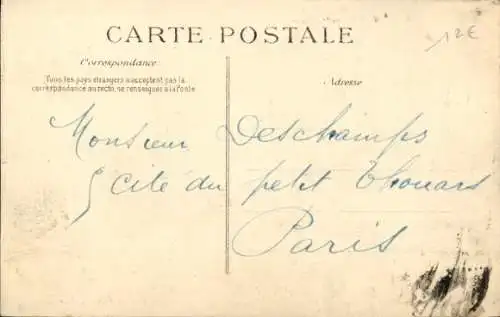 CARTE POSTALE
12€
Correspondance
Adresse
Tous les pays étrangers n'acceptent pas la
correspondance au recto, se renseigner à la Poste
Monsieur Deschamps
5 cité du petit Thouars
Paris